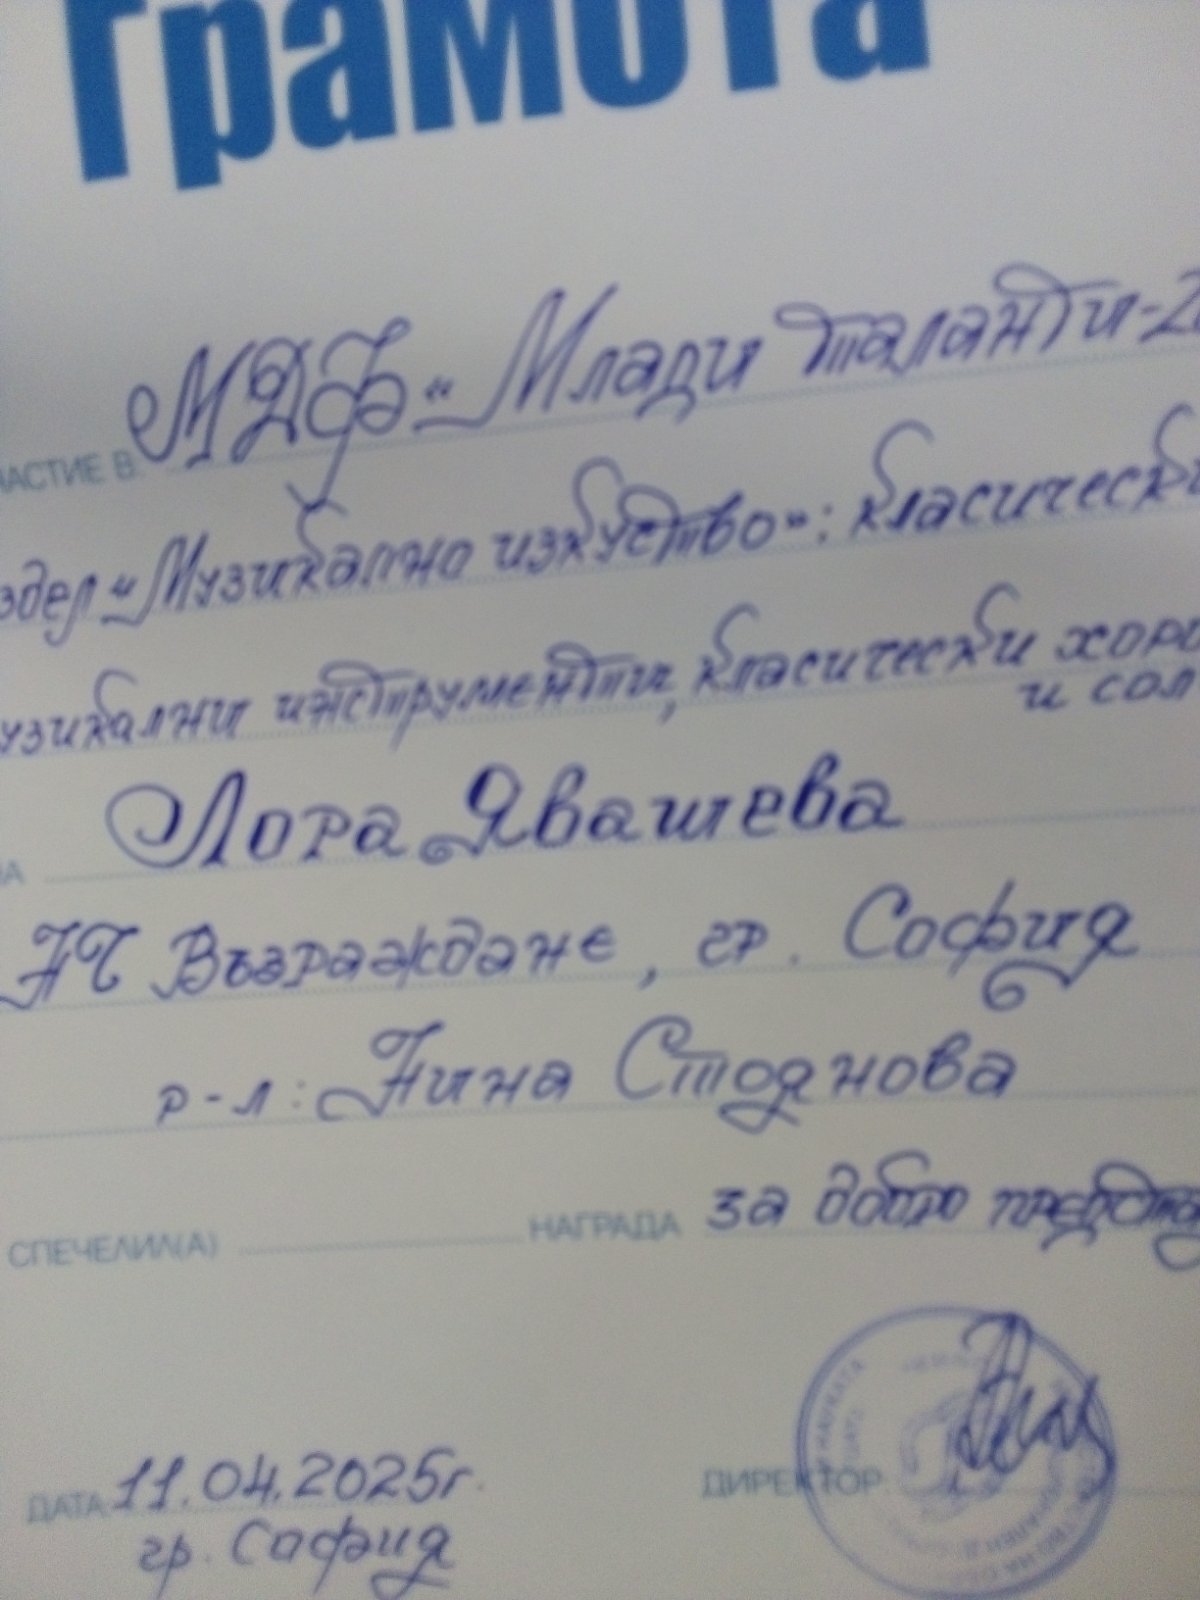 Грамота
ЧАСТИЕ В: МДФ „Млади таланти-2
здел „Музикално изкуство“: класически
узикални инструменти, класически хоро
и сол
НА Лора Явашева
НЧ Възраждане, гр. София
р-л: Нина Стоянова
СПЕЧЕЛИЛ(А) НАГРАДА за добро предста
ДАТА 11.04.2025г. ДИРЕКТОР
гр. София